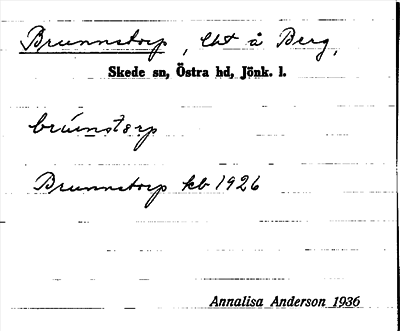 Brunnstorp, lht å Berg,
Skede sn, Östra hd, Jönk. l.
brúnstɞrp
Brunnstorp kb 1926
Annalisa Anderson 1936